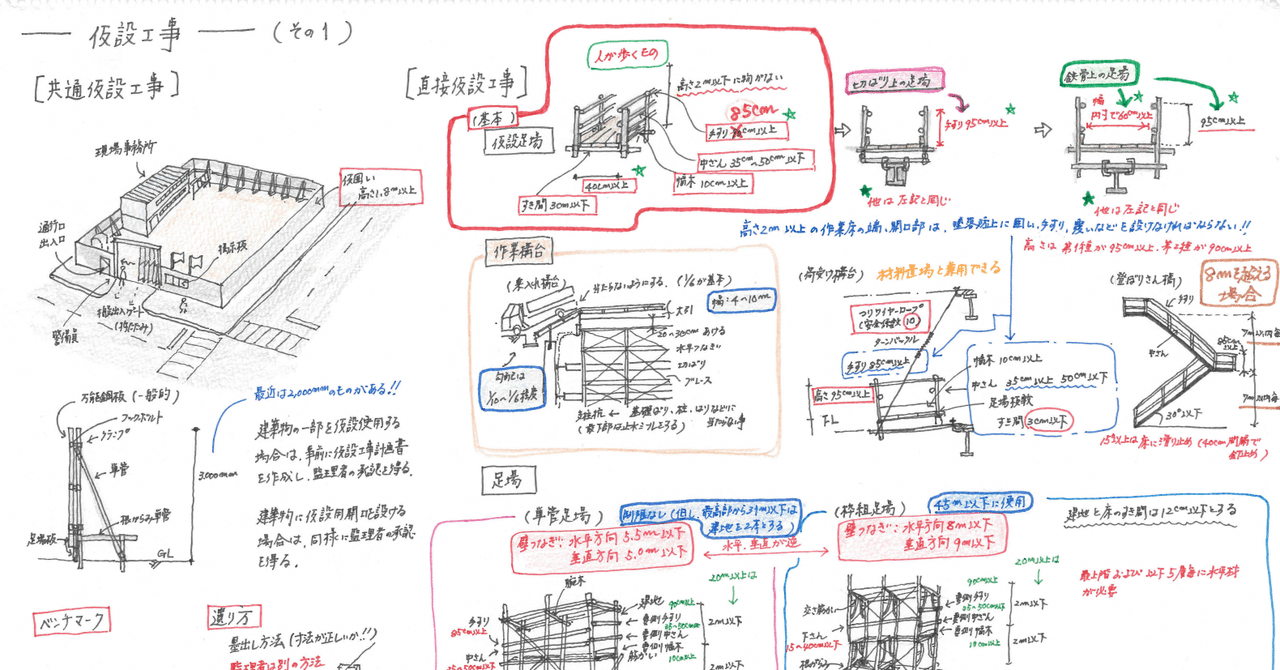 仮設工事 (その1)
[共通仮設工事]
現場事務所
仮囲い
高さ1.8m以上
通行口
出入口
掲示板
警備員
万能鋼板(一般的)
フックボルト
クランプ
単管
根がらみ単管
足場板
GL
3.000mm
最近は2,000mmのものがある!!
建築物の一部を仮設使用する
場合は、事前に仮設工事計画書
を作成し、監理者の承認を得る。
建築物に仮設用開口を設ける
場合は、同様に監理者の承認
を得る。
ベンチマーク
遣り方
墨出し方法(寸法が正しいか!!)
監理者は別の方法
[直接仮設工事]
(基本)
仮設足場
人が歩くもの
高さ2m以下に物がない
85cm
手すり cm以上
中さん 35cm~50cm以下
幅木 10cm以上
40cm以上
すき間 3cm以下
切ばり上の足場
手すり95cm以上
他は左記と同じ
鉄骨上の足場
幅
内寸で60cm以上
95cm以上
他は左記と同じ
高さ2m以上の作業床の端、開口部は、墜落防止に囲い、手すり、覆いなどを設けなければならない!!
高さは第1種が95cm以上、第2種が90cm以上
作業構台
(乗入れ構台)
当たらないようにする。(1/6が基本)
幅:4~10m
大引
20~30cmあける
水平つなぎ
切ばり
ブレース
勾配は
1/10~1/6程度
支持杭 ← 基礎ばり、柱、はりなどに
当たらない事
(荷受け構台)
材料置場と兼用できる
つりワイヤーロープ
(安全係数10)
ターンバックル
手すり95cm以上
高さ95cm以上
FL
幅木 10cm以上
中さん 35cm以上 50cm以下
足場板敷
すき間 3cm以下
(登りさん橋)
8mを越える
場合
手すり
中さん
85cm
以上
30°以下
15°以上は床に滑り止め(40cm間隔で
釘止め)
足場
(単管足場)
制限なし(但し、最高部から31m以下は
建地を2本とする)
壁つなぎ: 水平方向 5.5m以下
垂直方向 5.0m以下
水平、垂直が逆
腕木
建地
手すり
85cm以上
中さん
35~50cm以下
20m以上は
90cm以上
35~50cm以下
10cm以上
2m以下
2m以下
(枠組足場)
45m以下に使用
壁つなぎ: 水平方向8m以下
垂直方向9m以下
建地と床のすき間は12cm以下とする
最上階および以下5層毎に水平材
が必要
交さ筋かい
下さん
15~40cm以下
20m以上は
90cm以上
35~50cm以下
10cm以上
2m以下
2m以下